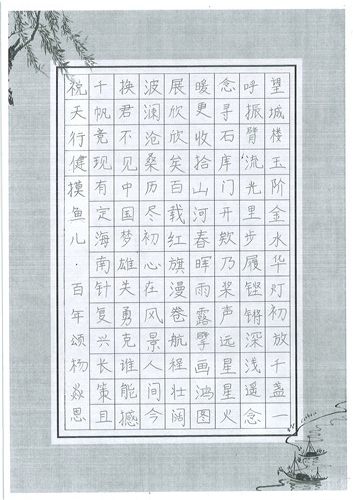 望城楼玉阶金水华灯初放千盏一
呼振臂流光里步履铿锵深浅遥念
念寻石库门开欸乃桨声远星星火
暖更收拾山河春晖雨露擘画鸿图
展欣欣矣百载红旗漫卷航程壮阔
波澜沧桑历尽初心在风景人间今
换君不见中国梦雄失勇克谁能撼
千帆竞现有定海南针复兴长策且
祝天行健摸鱼儿·百年颂杨焱思